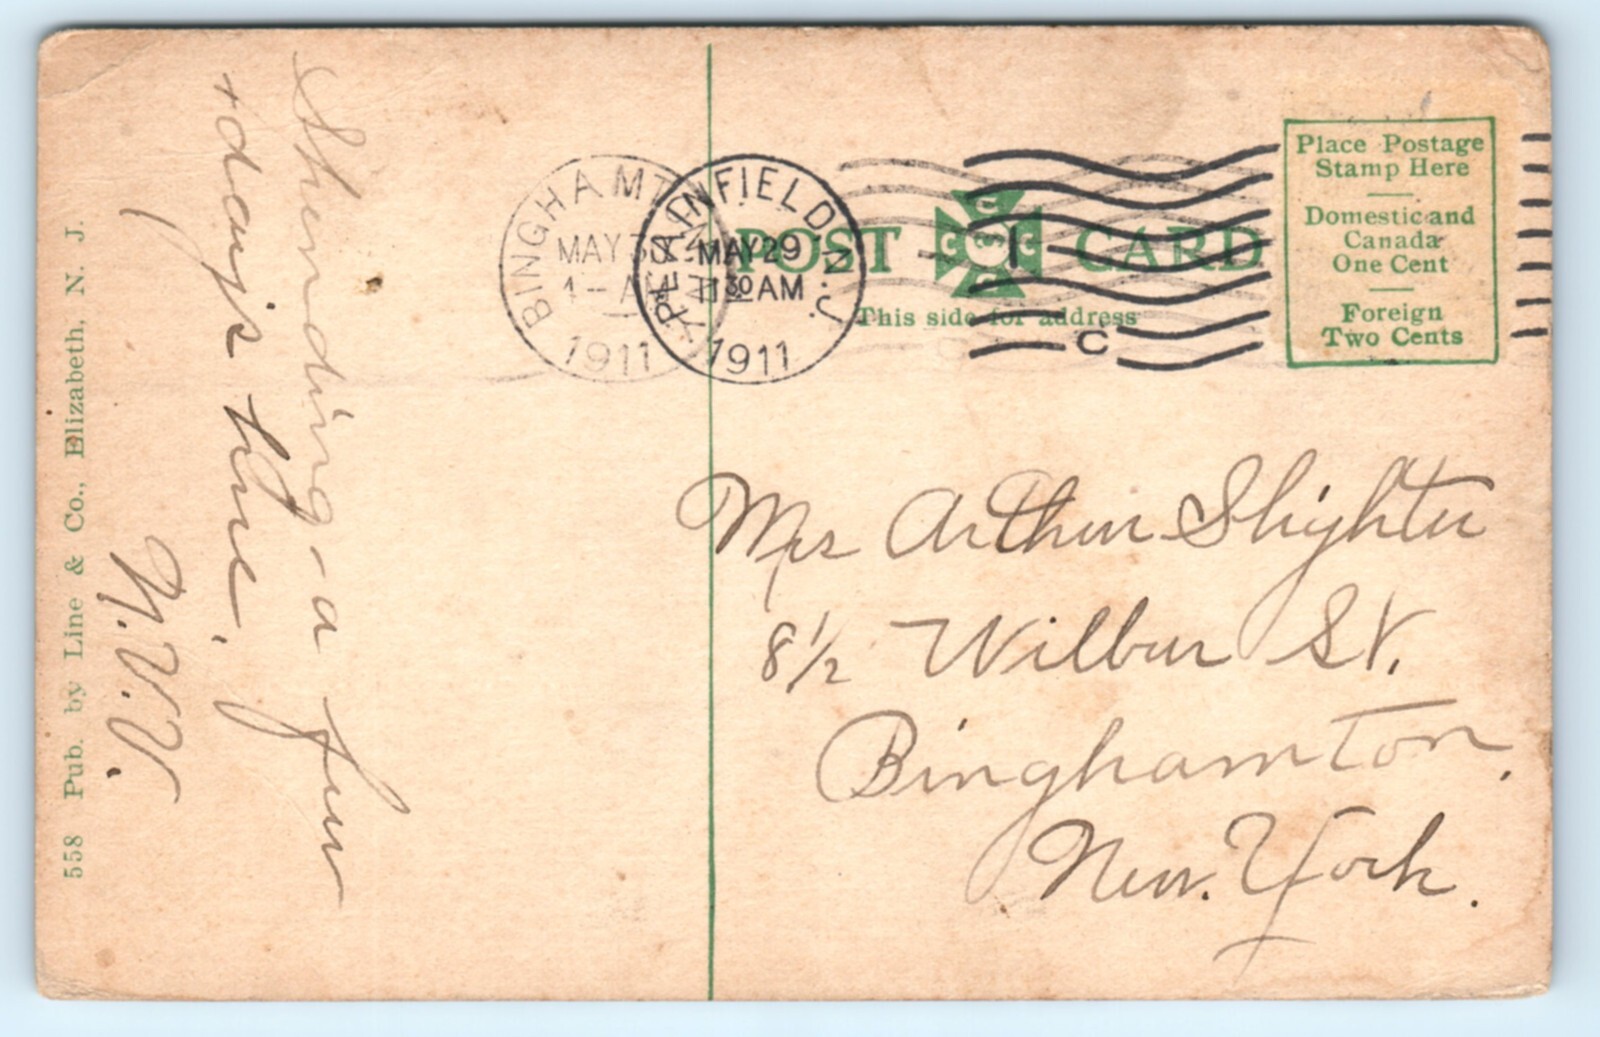 Spending a few
days here.
N.V.V.
558 Pub. by Line & Co., Elizabeth, N. J.
BINGHAMTON
MAY 30
1 - AM
1911
N.Y.
PLAINFIELD, N.J.
MAY 29
11 30 AM
1911
POST CARD
This side for address
1
C
Place Postage
Stamp Here
Domestic and
Canada
One Cent
Foreign
Two Cents
Mrs Arthur Slighter
8 1/2 Wilbur St.
Binghamton,
New. York.